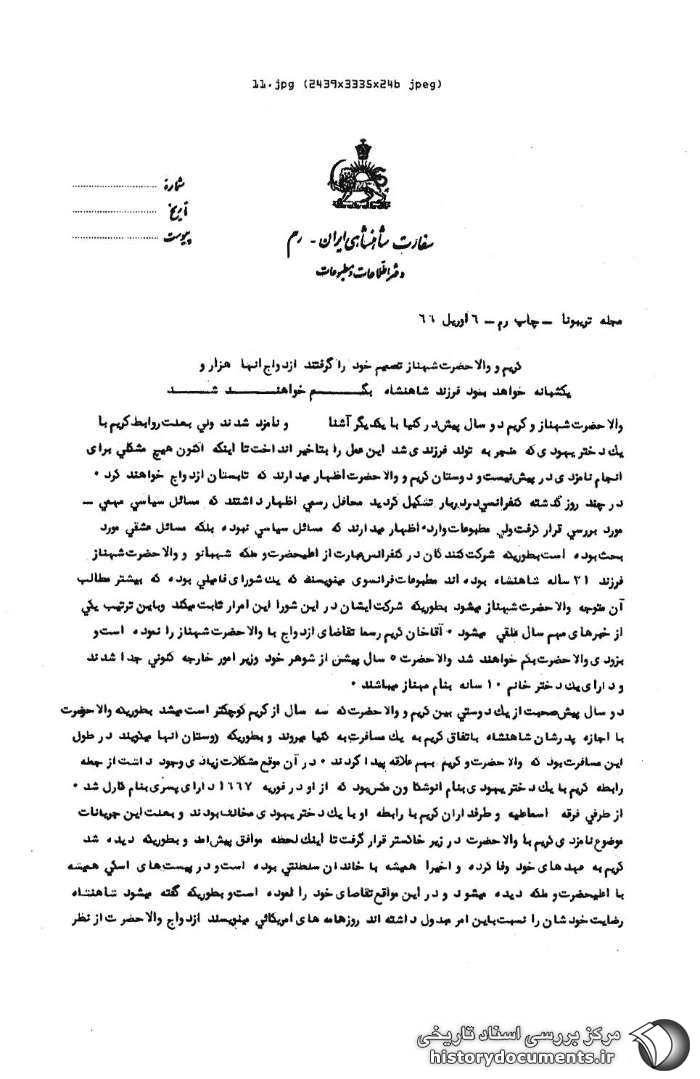 11.jpg (2439x3335x24b jpeg)
شماره
تاریخ
پیوست
سفارت شاهنشاهی ایران - رم
دفتر اطلاعات و مطبوعات
مجله تریبونا – چاپ رم – ٦ اوریل ٦٦
کریم و والا حضرت شهناز تصمیم خود را گرفتند ازدواج انها هزار و
یکشبانه خواهد بود فرزند شاهنشاه بگم خواهند شد
والا حضرت شهناز و کریم دو سال پیش در کنیا با یکدیگر آشنا و نامزد شدند ولی بعلت روابط کریم با
یك دختر یهودی که منجر به تولد فرزندی شد این عمل را بتاخیر انداخت تا اینکه اکنون هیچ مشکلی برای
انجام نامزدی در پیش نیست و دوستان کریم و والا حضرت اظهار میدارند که تابستان ازدواج خواهند کرد .
در چند روز گذشته کنفرانسی در دربار تشکیل گردید محافل رسمی اظهار داشتند که مسائل سیاسی مهمی –
مورد بررسی قرار گرفت ولی مطبوعات وارده اظهار میدارند که مسائل سیاسی نبوده بلکه مسائل عشقی مورد
بحث بوده است بطوریکه شرکت کنندگان در کنفرانس عبارت از اعلیحضرت و ملکه شهبانو و والا حضرت شهناز
فرزند ٢١ ساله شاهنشاه بوده اند مطبوعات فرانسوی مینویسند که یك شورای فامیلی بوده که بیشتر مطالب
آن متوجه والا حضرت شهناز میشود بطوریکه شرکت ایشان در این شورا این اسرار ثابت میکند وباین ترتیب یکی
از خبرهای مهم سال تلقی میشود . آقاخان کریم رسما تقاضای ازدواج با والا حضرت شهناز را نموده است و
بزودی والا حضرت بگم خواهند شد والا حضرت ٥ سال پیش از شوهر خود وزیر امور خارجه کنونی جدا شدند
و دارای یك دختر خانم ١٠ ساله بنام مهناز میباشند .
دو سال پیش صحبت از یك دوستی بین کریم و والا حضرت که سه سال از کریم کوچکتر است میشد بطوریکه والا حضرت
با اجازه پدرشان شاهنشاه باتفاق کریم به یك مسافرت به کنیا میروند و بطوریکه دوستان انها میگویند در طول
این مسافرت بود که والا حضرت و کریم بهم علاقه پیدا کردند . در آن موقع مشکلات زیادی وجود داشت از جمله
رابطه کریم با یك دختر یهودی بنام انوشکا ون مکس بود که از او در فوریه ١٦٦٧ دارای پسری بنام کارل شد .
از طرفی فرقه اسماعیلیه و طرفداران کریم با رابطه او با یك دختر یهودی مخالف بودند و بعلت این جریانات
موضوع نامزدی کریم با والا حضرت در زیر خاکستر قرار گرفت تا اینك لحظه موافق پیش امد و بطوریکه دیده شد
کریم به عهدهای خود وفا کرده و اخیرا همیشه با خاندان سلطنتی بوده است و در پیست های اسکی همیشه
با اعلیحضرت و ملکه دیده میشود و در این مواقع تقاضای خود را نموده است و بطوریکه گفته میشود شاهنشاه
رضایت خودشان را نسبت باین امر مبذول داشته اند روزنامه های امریکائی مینویسند ازدواج والا حضرت از نظر
مرکز بررسی اسناد تاریخی
historydocuments.ir